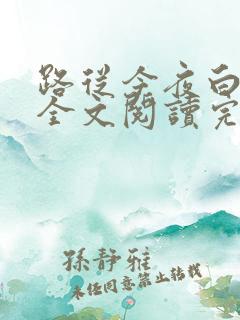 路從今夜白
全文閱讀完
孫靜雅
未经同意禁止转载